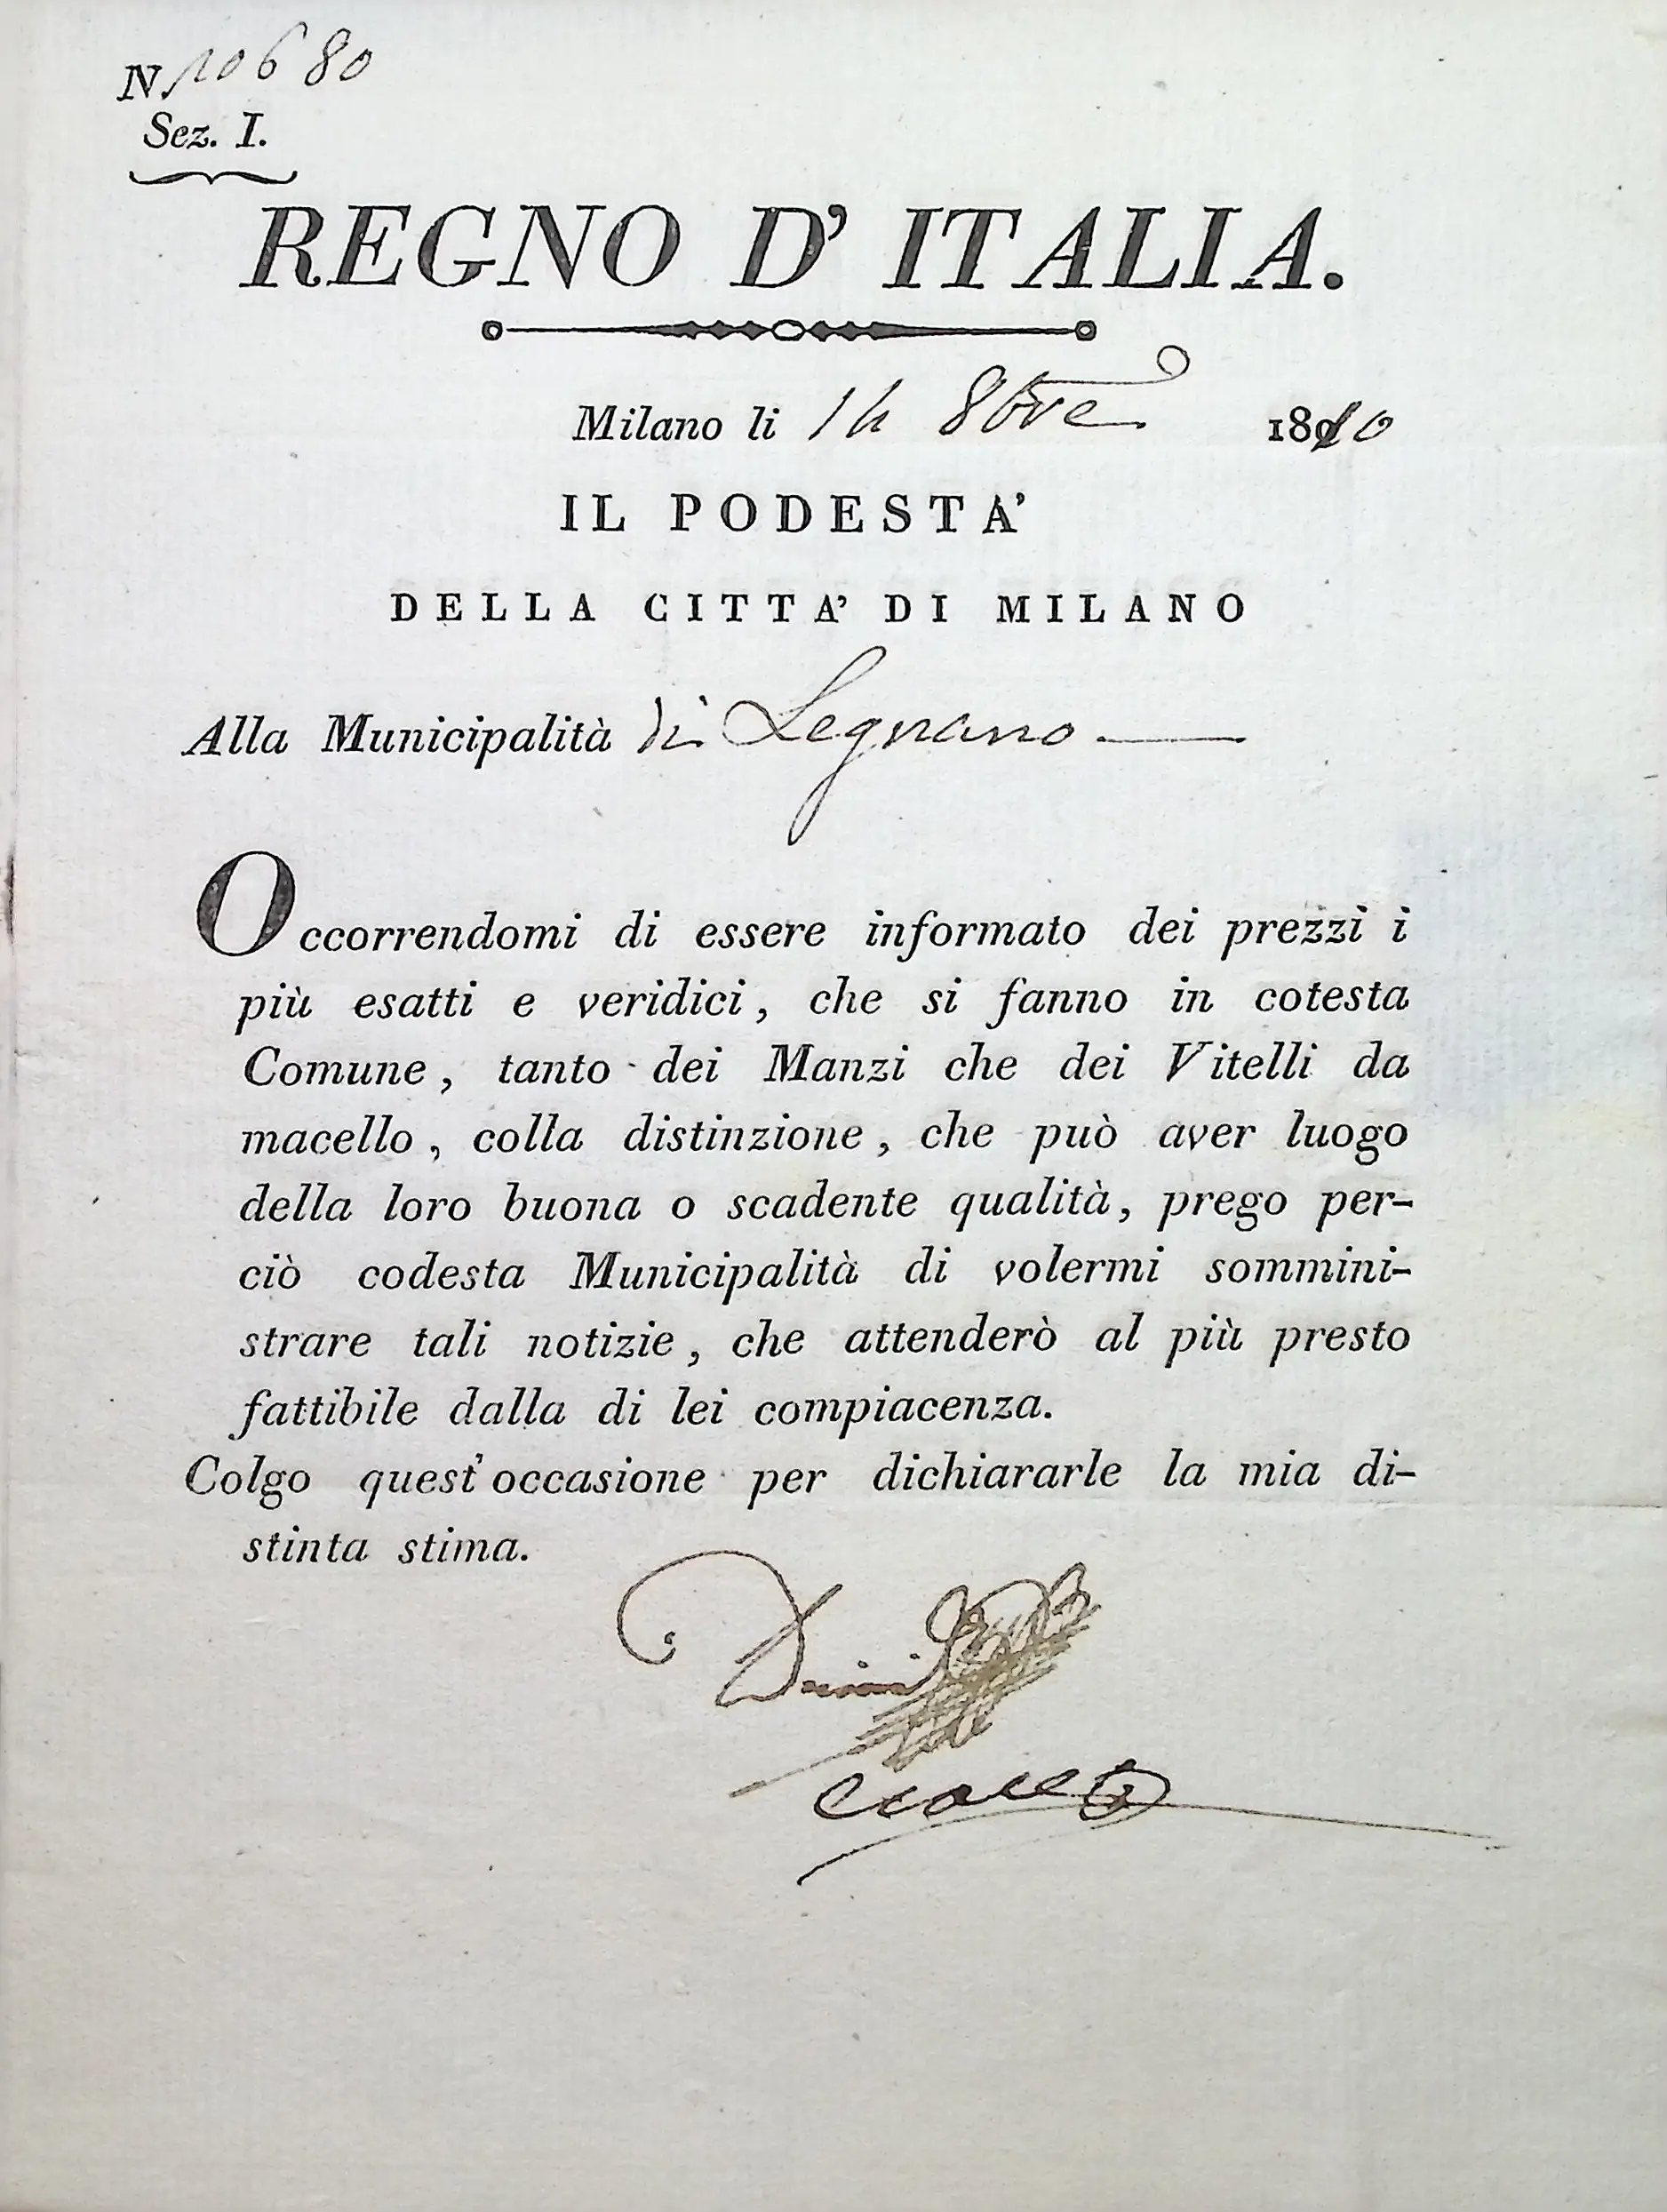 N. 10680
Sez. I.
REGNO D' ITALIA.
Milano li 14 8bre 1810
IL PODESTA'
DELLA CITTA' DI MILANO
Alla Municipalità di Legnano
Occorrendomi di essere informato dei prezzi i
più esatti e veridici, che si fanno in cotesta
Comune, tanto dei Manzi che dei Vitelli da
macello, colla distinzione, che può aver luogo
della loro buona o scadente qualità, prego per-
ciò codesta Municipalità di volermi sommini-
strare tali notizie, che attenderò al più presto
fattibile dalla di lei compiacenza.
Colgo quest' occasione per dichiararle la mia di-
stinta stima.